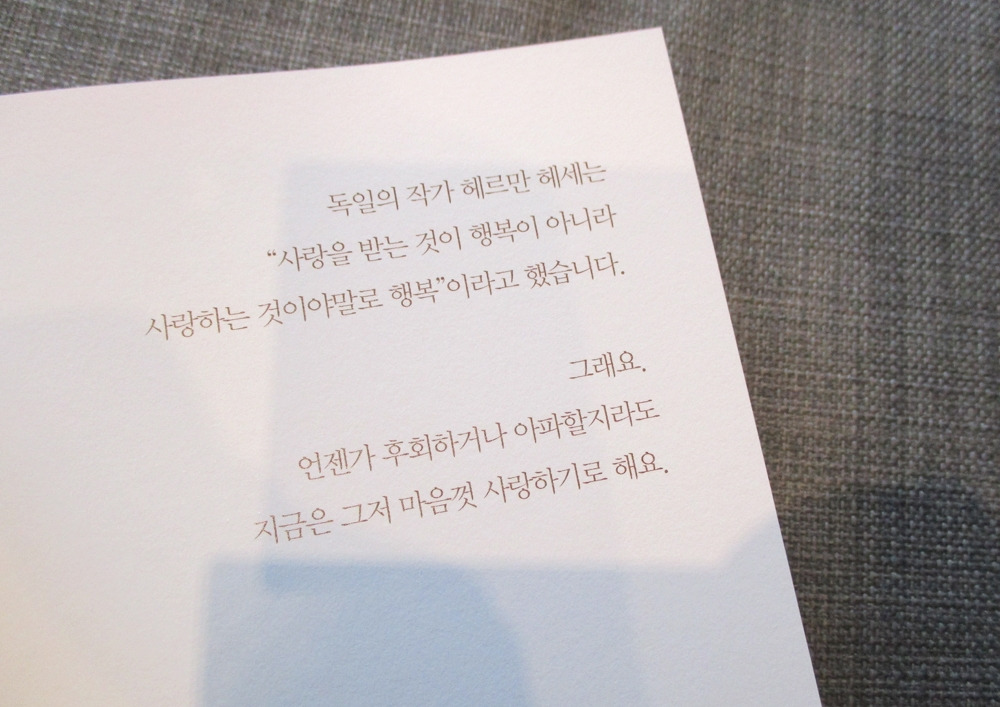 독일의 작가 헤르만 헤세는
“사랑을 받는 것이 행복이 아니라
사랑하는 것이야말로 행복”이라고 했습니다.
그래요.
언젠가 후회하거나 아파할지라도
지금은 그저 마음껏 사랑하기로 해요.